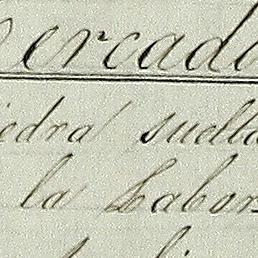 ercad
iedra suelta
la Labor